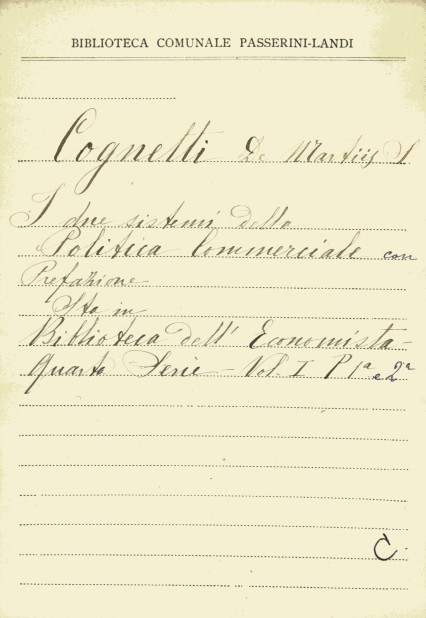 BIBLIOTECA COMUNALE PASSERINI-LANDI
Cognetti De Martiis S
I due sistemi della
Politica Commerciale con
Prefazione
Sta in
Biblioteca dell' Economista -
Quarta Serie - Vol. I P 1ª e 2ª
C